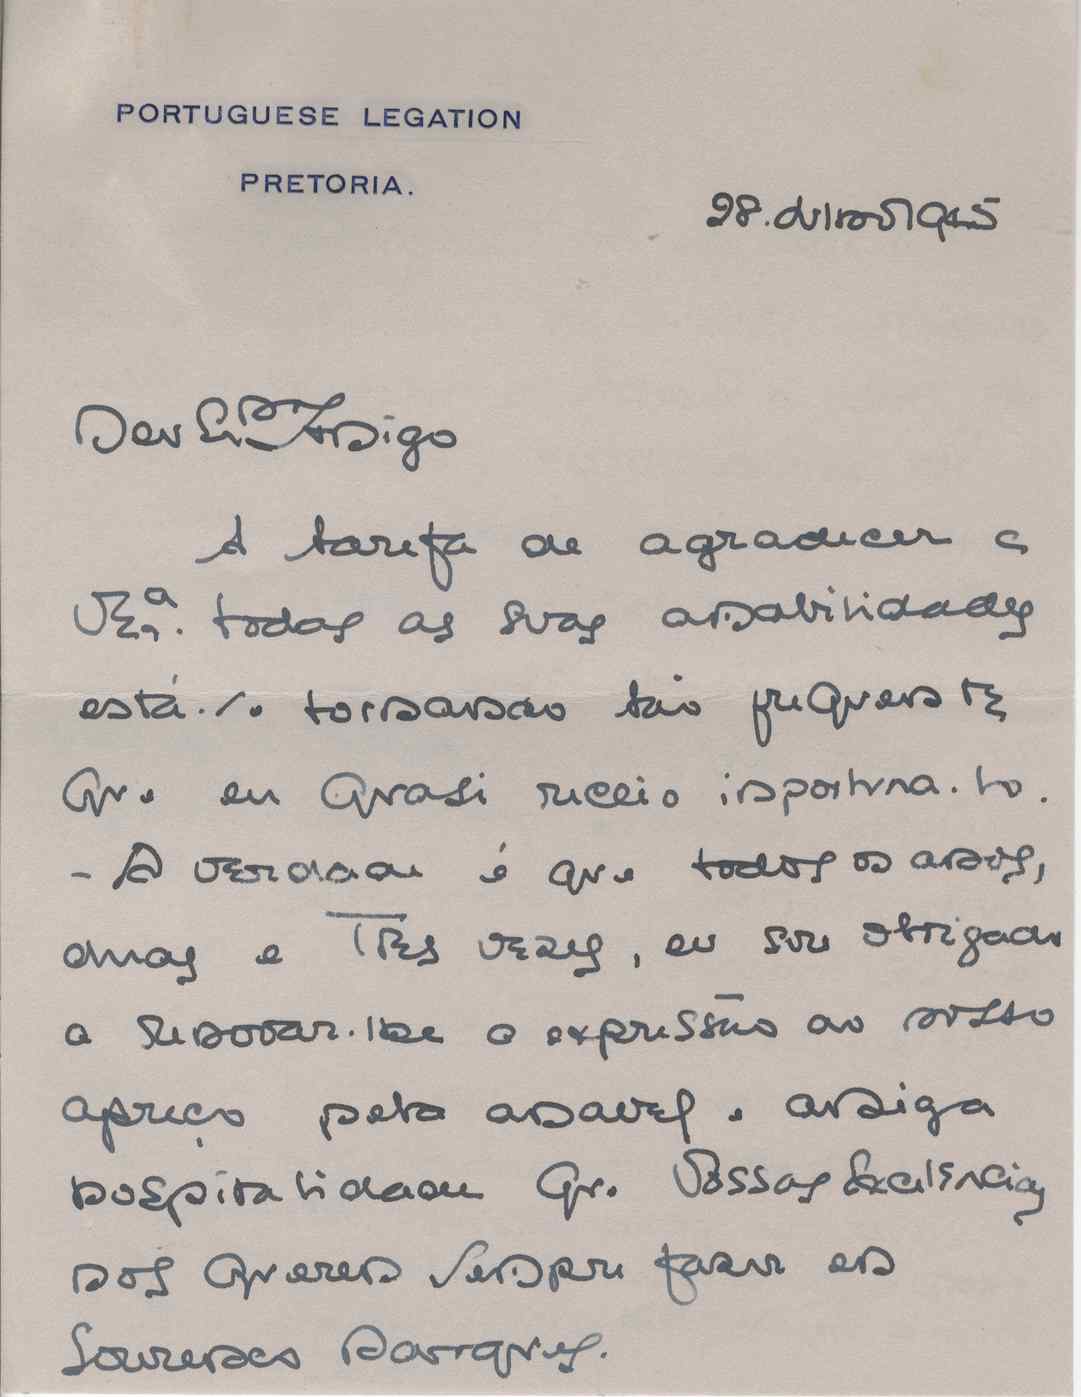 PORTUGUESE LEGATION
PRETORIA.
28. 1945
Meu Exmo Amigo
A tarefa de agradecer a
V. Exª. todas as suas amabilidades
está-se tornando tão frequente
que eu quasi receio importuna-lo.
- A verdade é que todos os anos,
duas e três vezes, eu sou obrigado
a renovar-lhe a expressão do nosso
apreço pela amavel e amiga
hospitalidade que Vossas Excelências
nos querem sempre fazer em
Lourenço Marques.